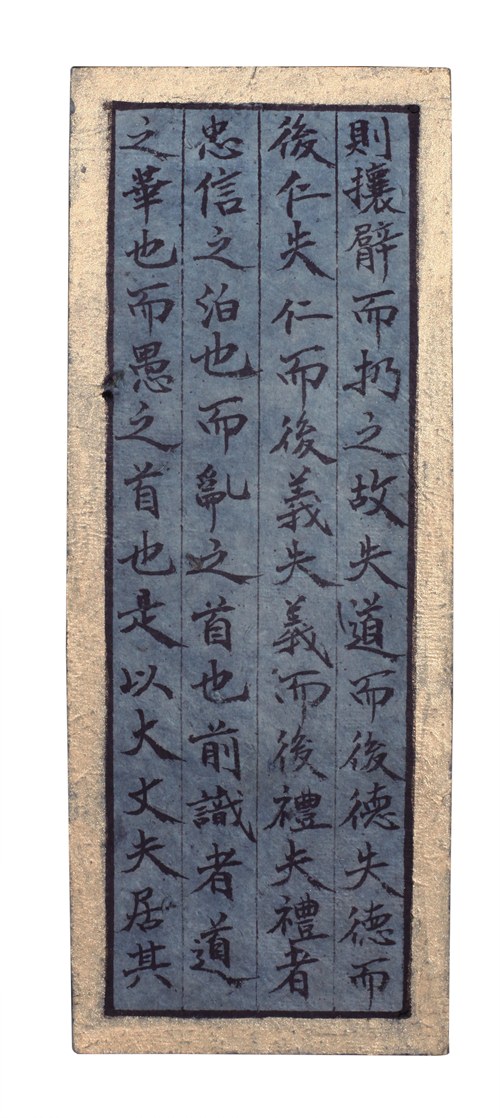 則攘臂而扔之故失道而後德失德而
後仁失仁而後義失義而後禮夫禮者
忠信之泊也而亂之首也前識者道
之華也而愚之首也是以大丈夫居其